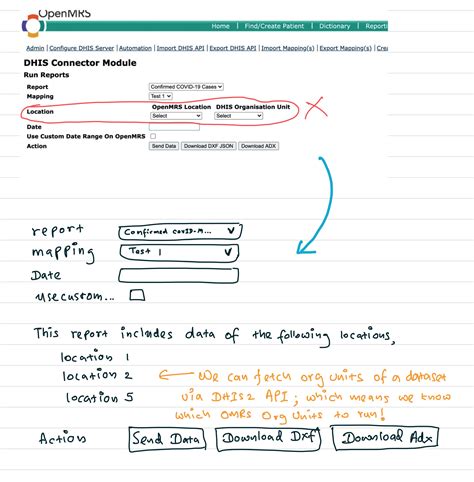 OpenMRS
Home | Find/Create Patient | Dictionary | Reporti
Admin | Configure DHIS Server | Automation | Import DHIS API | Export DHIS API | Import Mapping(s) | Export Mapping(s) | Crea
DHIS Connector Module
Run Reports
Report Confirmed COVID-19 Cases
Mapping Test 1
OpenMRS Location DHIS Organisation Unit
Location Select Select
Date
Use Custom Date Range On OpenMRS
Action Send Data Download DXF JSON Download ADX
report Confirmed cov ID-19...
mapping Test 1
Date
use custom...
This report includes data of the following locations,
location 1
location 2 ← We can fetch org units of a dataset
location 5 via DHIS2 API; which means we know
which OMRS Org Units to run!
Action Send Data Download Dxf Download Adx